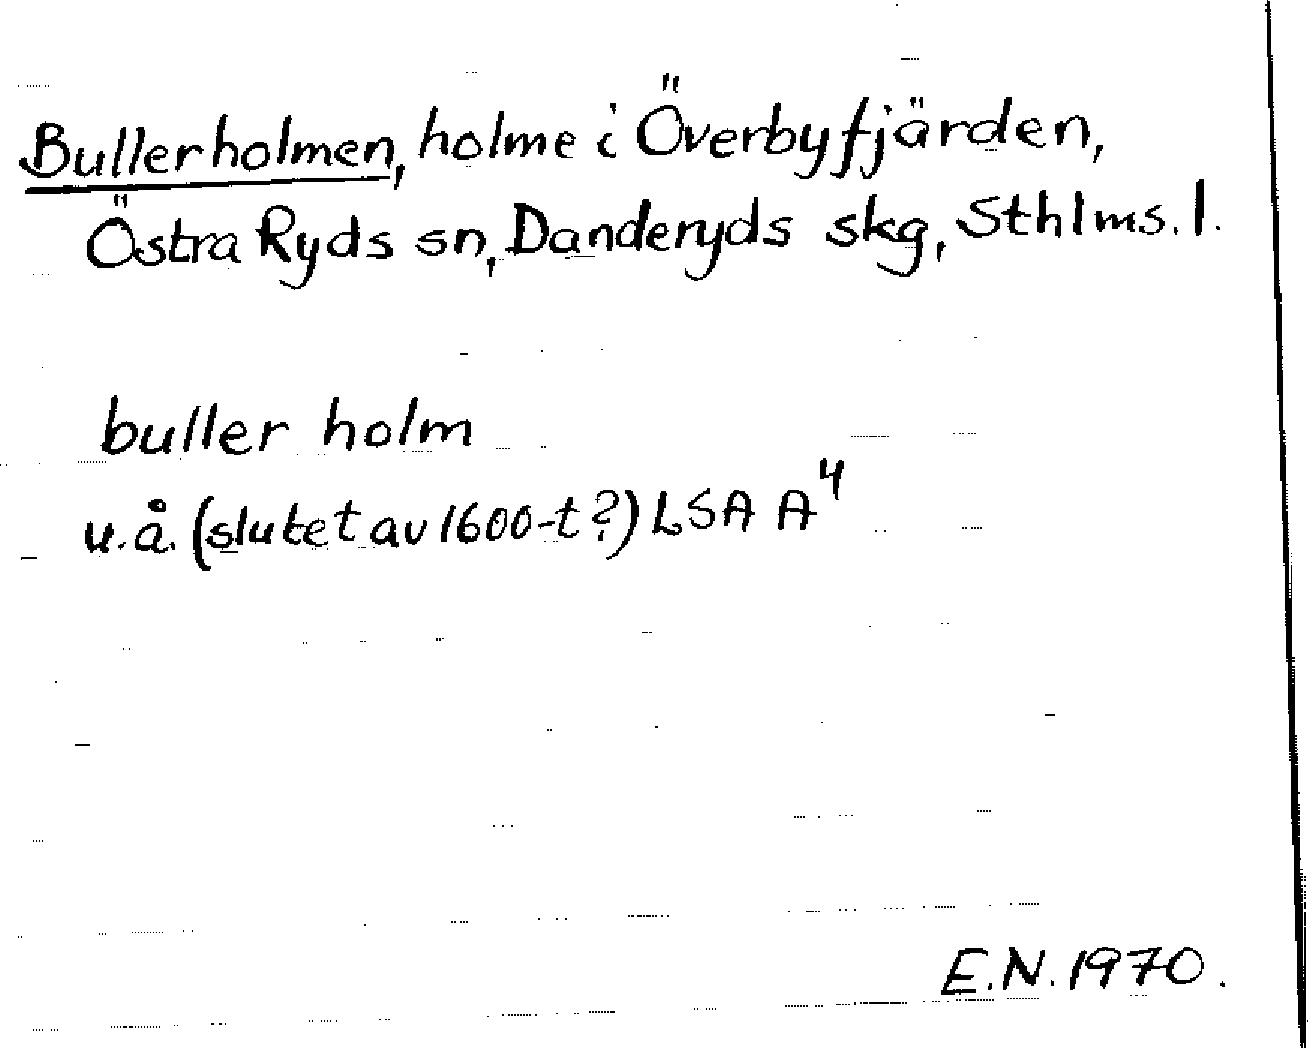 Bullerholmen, holme i Överbyfjärden,
Östra Ryds sn, Danderyds skg, Sthlms. l.
buller holm
u.å. (slutet av 1600-t?) LSA A⁴
E.N. 1970.